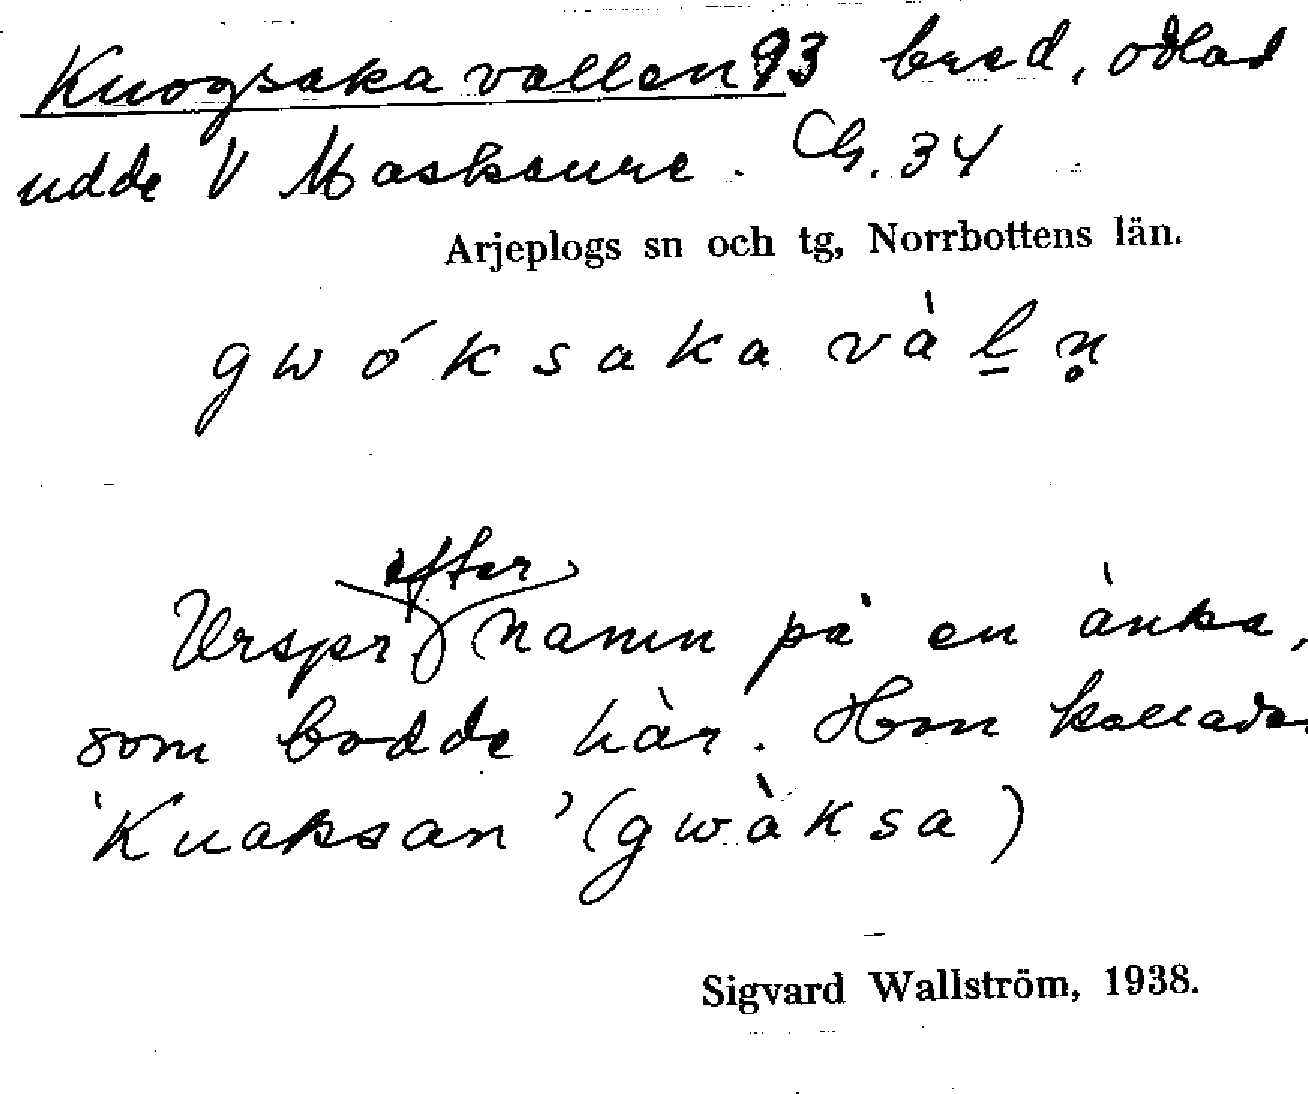 Kuogsakavallen 93 bred, odlad
udde V Maskaure. Ch. 34
Arjeplogs sn och tg, Norrbottens län.
gwóksaka vàl̲n̥
Urspr efter namn på en änka,
som bodde här. Hon kallades
'Kuaksan' (gwàksa)
Sigvard Wallström, 1938.